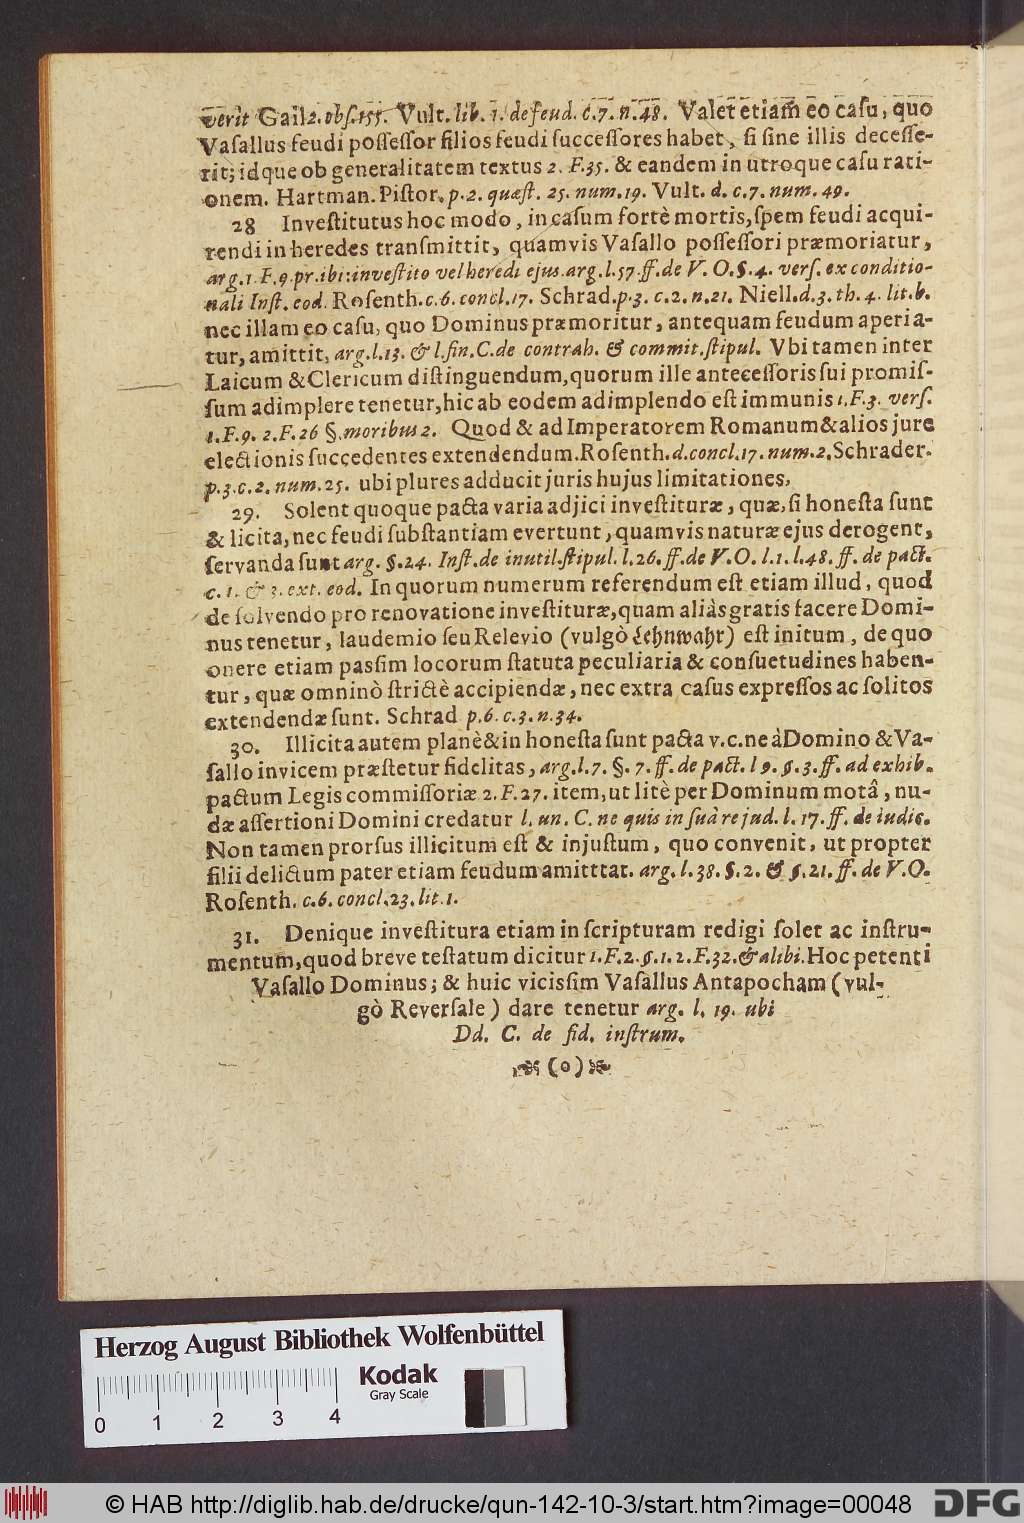 verit Gail 2. obſ. 155. Vult. lib. 1. de feud. c. 7. n. 48. Valet etiam eo caſu, quo
Vaſallus feudi poſſeſſor filios feudi ſucceſſores habet, ſi ſine illis deceſſe-
rit; idque ob generalitatem textus 2. F. 35. & eandem in utroque caſu rati-
onem. Hartman. Piſtor. p. 2. quæſt. 25. num. 19. Vult. d. c. 7. num. 49.
28 Inveſtitutus hoc modo, in caſum fortè mortis, ſpem feudi acqui-
rendi in heredes transmittit, quamvis Vaſallo poſſeſſori præmoriatur,
arg. 1. F. 9. pr. ibi: inveſtito vel heredi ejus. arg. l. 57. ff. de V. O. §. 4. verſ. ex conditio-
nali Inſt. eod. Roſenth. c. 6. concl. 17. Schrad. p. 3. c. 2. n. 21. Niell. d. 3. th. 4. lit. b.
nec illam eo caſu, quo Dominus præmoritur, antequam feudum aperia-
tur, amittit, arg. l. 13. & l. fin. C. de contrah. & commit. ſtipul. Vbi tamen inter
Laicum & Clericum diſtinguendum, quorum ille anteceſſoris ſui promiſ-
ſum adimplere tenetur, hic ab eodem adimplendo eſt immunis 1. F. 3. verſ.
1. F. 9. 2. F. 26 §. moribus 2. Quod & ad Imperatorem Romanum & alios jure
electionis ſuccedentes extendendum. Roſenth. d. concl. 17. num. 2. Schrader.
p. 3. c. 2. num. 25. ubi plures adducit juris hujus limitationes,
29. Solent quoque pacta varia adjici inveſtituræ, quæ, ſi honeſta ſunt
& licita, nec feudi ſubſtantiam evertunt, quamvis naturæ ejus derogent,
ſervanda ſunt arg. §. 24. Inſt. de inutil. ſtipul. l. 26. ff. de V. O. l. 1. l. 48. ff. de pact.
c. 1. & 3. ext. eod. In quorum numerum referendum eſt etiam illud, quod
de ſolvendo pro renovatione inveſtituræ, quam aliàs gratis facere Domi-
nus tenetur, laudemio ſeu Relevio (vulgò Lehnwahr) eſt initum, de quo
onere etiam paſſim locorum ſtatuta peculiaria & conſuetudines haben-
tur, quæ omninò ſtrictè accipiendæ, nec extra caſus expreſſos ac ſolitos
extendendæ ſunt. Schrad p. 6. c. 3. n. 34.
30. Illicita autem planè & in honeſta ſunt pacta v. c. ne à Domino & Va-
ſallo invicem præſtetur fidelitas, arg. l. 7. §. 7. ff. de pact. l 9. §. 3. ff. ad exhib.
pactum Legis commiſſoriæ 2. F. 27. item, ut litè per Dominum motâ, nu-
dæ aſſertioni Domini credatur l. un. C. ne quis in ſuâ re jud. l. 17. ff. de iudic.
Non tamen prorſus illicitum eſt & injuſtum, quo convenit, ut propter
filii delictum pater etiam feudum amitttat. arg. l. 38. §. 2. & §. 21. ff. de V. O.
Roſenth. c. 6. concl. 23. lit. 1.
31. Denique inveſtitura etiam in ſcripturam redigi ſolet ac inſtru-
mentum, quod breve teſtatum dicitur 1. F. 2. §. 1. 2. F. 32. & alibi. Hoc petenti
Vaſallo Dominus; & huic viciſſim Vaſallus Antapocham (vul-
gò Reverſale) dare tenetur arg. l. 19. ubi
Dd. C. de fid. inſtrum.
(o)
Herzog August Bibliothek Wolfenbüttel
Kodak
Gray Scale
0 1 2 3 4
© HAB http://diglib.hab.de/drucke/qun-142-10-3/start.htm?image=00048
DFG